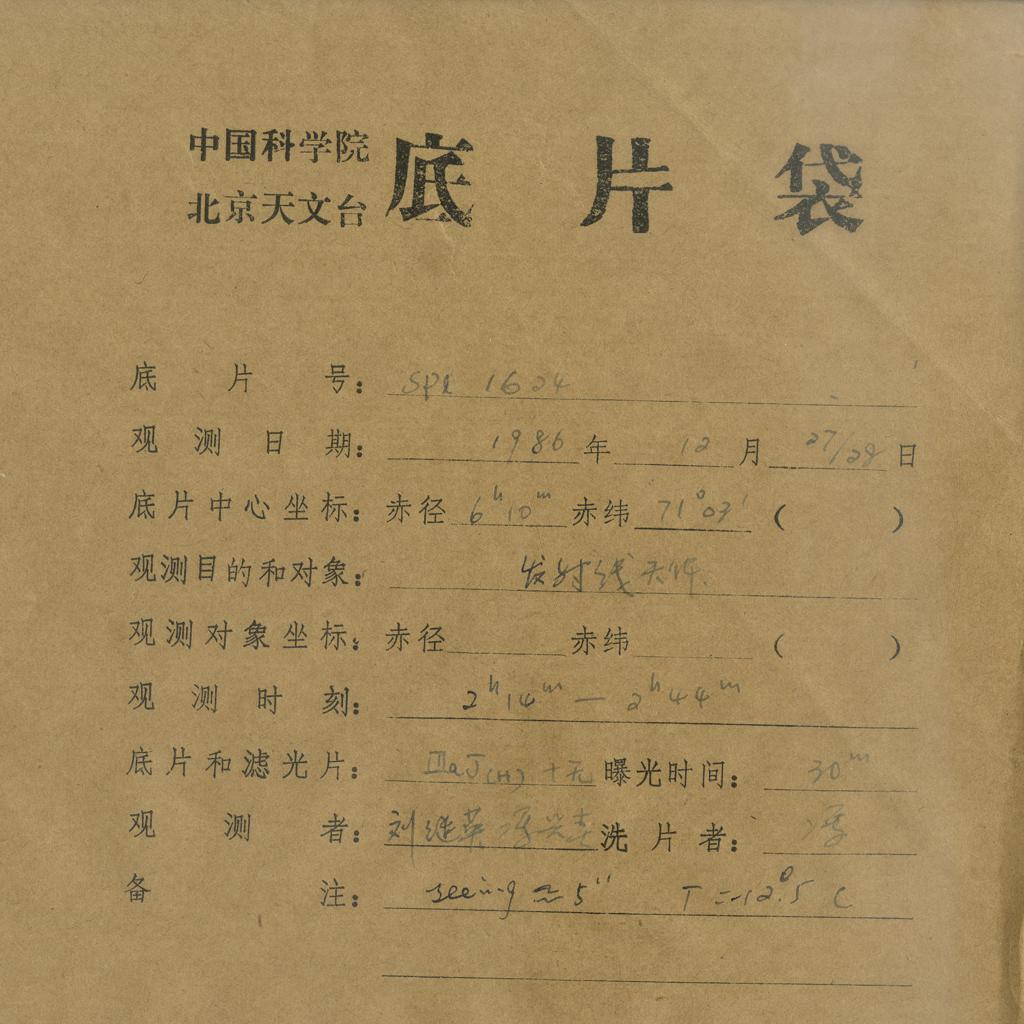 中国科学院
北京天文台 底片袋
底片号：SPL 1624
观测日期：1986年12月27/28日
底片中心坐标：赤径 6ʰ10ᵐ 赤纬 71°03′ （ ）
观测目的和对象：发射线天体
观测对象坐标：赤径 赤纬 （ ）
观测时刻：2ʰ14ᵐ — 2ʰ44ᵐ
底片和滤光片：ⅢaJ(H)+无 曝光时间：30ᵐ
观测者：刘继英 冯兴春 洗片者：冯
备注：seeing ≈ 5″ T=-12°.5 C